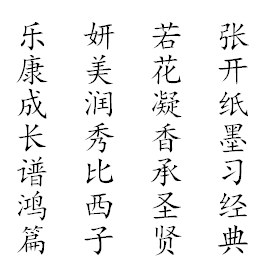 张开纸墨习经典
若花凝香承圣贤
妍美润秀比西子
乐康成长谱鸿篇